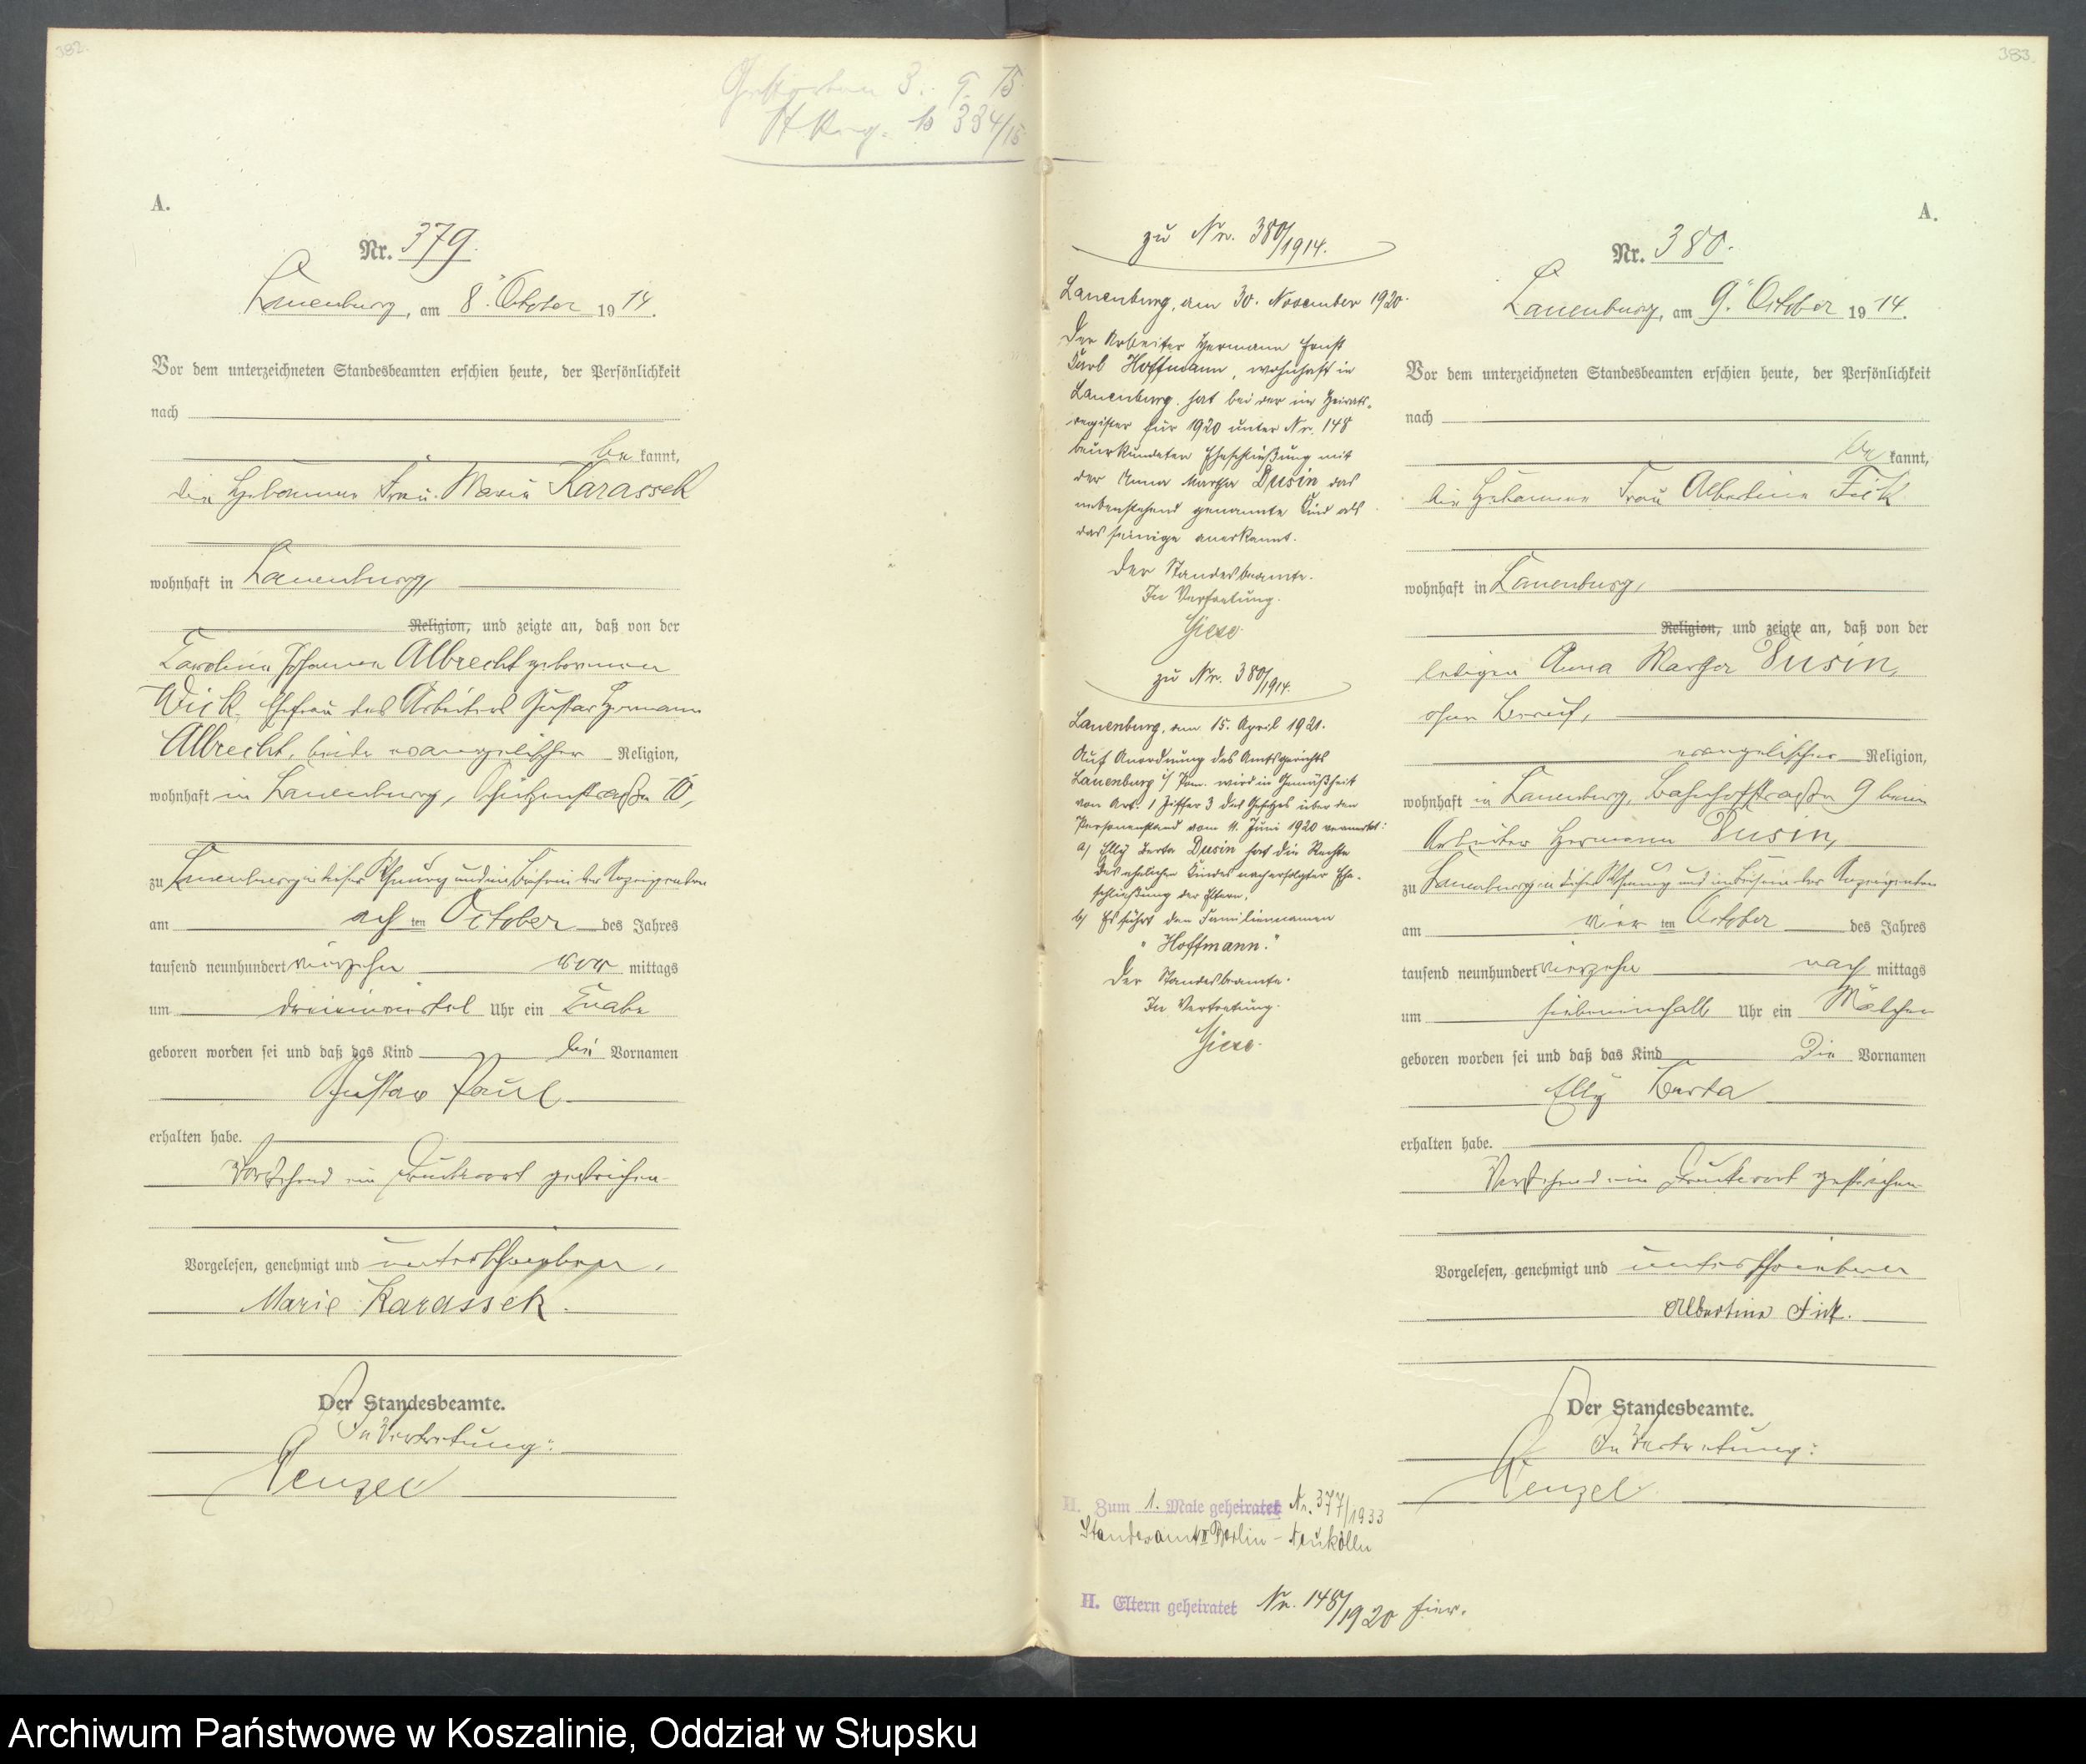 382.
Gestorben 3. 9. 15.
St. Reg. № 334/15
A.
Nr. 379.
Lauenburg, am 8. October 1914.
Vor dem unterzeichneten Standesbeamten erschien heute, der Persönlichkeit
nach
be kannt,
die Hebamme Frau Marie Karassek
wohnhaft in Lauenburg,
Religion, und zeigte an, daß von der
Karoline Johanna Albrecht geborenen
Wick, Ehefrau des Arbeiters Gustav Hermann
Albrecht, beide evangelischer Religion,
wohnhaft in Lauenburg, Schützenstraße
zu Lauenburg in dieser Wohnung und im Beisein der Anzeigenden
am acht ten October des Jahres
tausend neunhundert vierzehn vor mittags
um dreiviertel Uhr ein Knabe
geboren worden sei und daß das Kind die Vornamen
Gustav Paul
erhalten habe.
Vorstehend ein Druckwort gestrichen.
Vorgelesen, genehmigt und unterschrieben.
Marie Karassek.
Der Standesbeamte.
In Vertretung:
Wenzel
zu Nr. 380/1914.
Lauenburg, am 30. November 1920.
Der Arbeiter Hermann Ernst
Karl Hoffmann, wohnhaft in
Lauenburg, hat bei der im Heirats-
register für 1920 unter Nr. 148
beurkundeten Eheschließung mit
der Anna Martha Dusin das
nebenstehend genannte Kind als
das seinige anerkannt.
Der Standesbeamte.
In Vertretung.
Giese.
zu Nr. 380/1914.
Lauenburg, am 15. April 1921.
Auf Anordnung des Amtsgerichts
Lauenburg i/ Pom. wird in Gemäßheit
von Art. 1 Ziffer 3 des Gesetzes über den
Personenstand vom 11. Juni 1920 vermerkt:
a) Elly Berta Dusin hat die Rechte
des ehelichen Kindes nach erfolgter Ehe-
schließung der Eltern,
b) Es führt den Familiennamen
"Hoffmann."
Der Standesbeamte.
In Vertretung.
Giese.
H. Zum 1. Male geheiratet Nr. 377/1933
Standesamt II Berlin - Neukölln
H. Eltern geheiratet Nr. 148/1920 hier.
383.
A.
Nr. 380.
Lauenburg, am 9. October 1914.
Vor dem unterzeichneten Standesbeamten erschien heute, der Persönlichkeit
nach
be kannt,
die Hebamme Frau Albertine Fick
wohnhaft in Lauenburg,
Religion, und zeigte an, daß von der
ledigen Anna Martha Dusin,
ohne Beruf,
evangelischer Religion,
wohnhaft in Lauenburg, Bahnhofstraße 9 beim
Arbeiter Hermann Dusin,
zu Lauenburg in dieser Wohnung und im Beisein der Anzeigenden
am vier ten October des Jahres
tausend neunhundert vierzehn nach mittags
um siebeneinhalb Uhr ein Mädchen
geboren worden sei und daß das Kind die Vornamen
Elly Berta
erhalten habe.
Vorstehend ein Druckwort gestrichen.
Vorgelesen, genehmigt und unterschrieben
Albertine Fick.
Der Standesbeamte.
In Vertretung:
Wenzel
Archiwum Państwowe w Koszalinie, Oddział w Słupsku